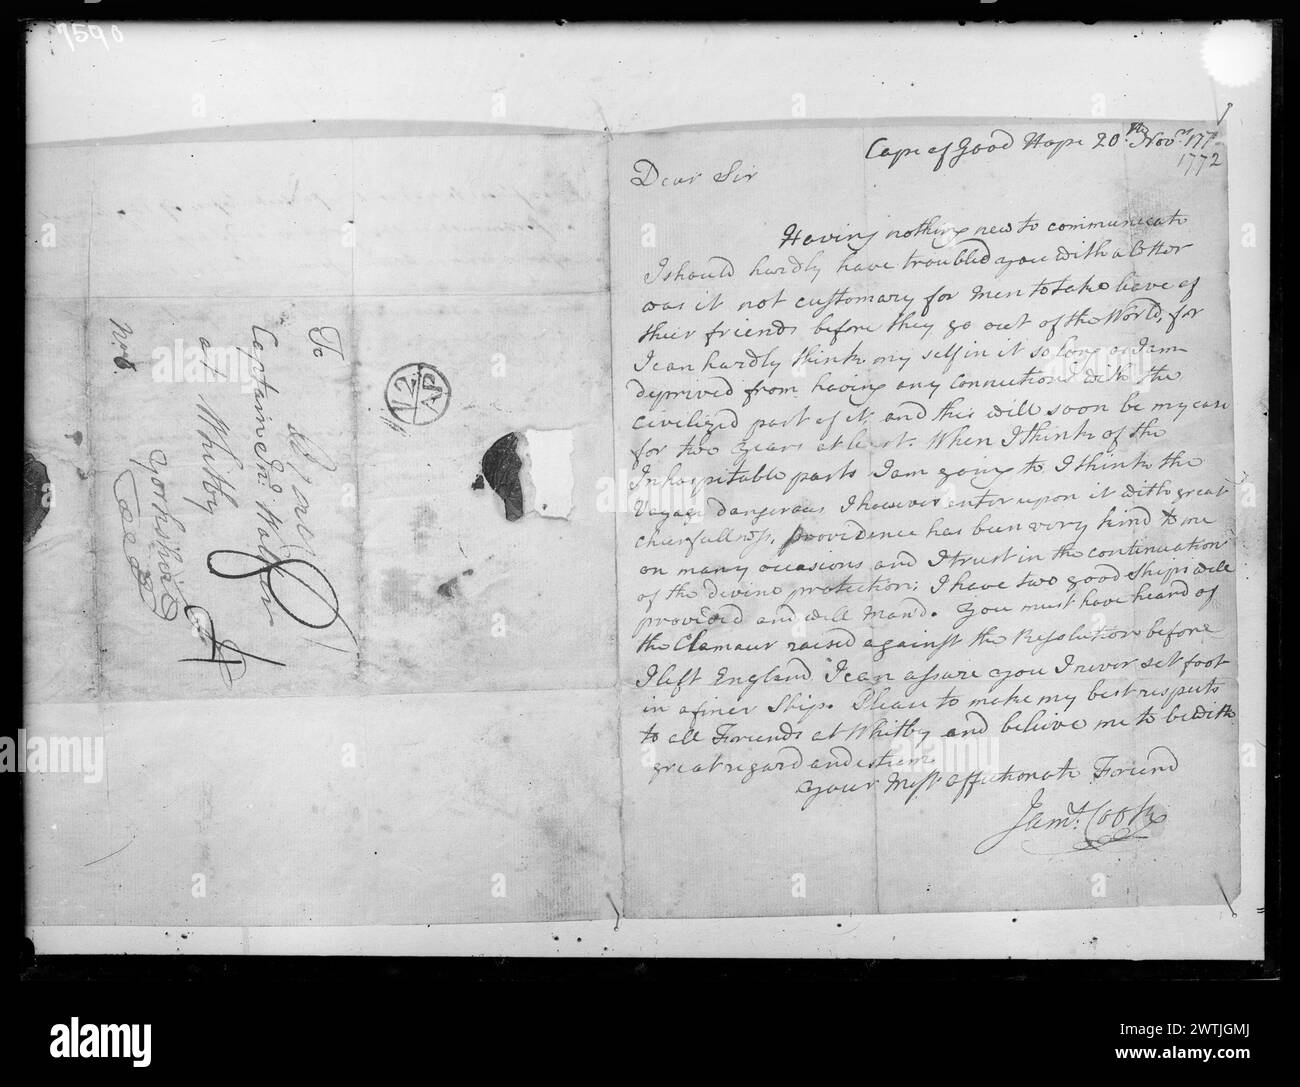 7590
Cape of Good Hope 20.th Nov.r 177
1772
Dear Sir
Having nothing new to communicate
I should hardly have troubled you with a letter
was it not customary for Men to take leave of
their friends before they go out of the World, for
I can hardly think my self in it so long as I am
deprived from having any Connections with the
civilized part of it, and this will soon be my case
for two years at least. When I think of the
Inhospitable parts I am going to I think the
Voyage dangerous, I however enter upon it with great
cheerfullness, providence has been very kind to me
on many occasions and I trust in the continuation
of the divine protection; I have two good Ships well
provided and well Man'd. You must have heard of
the Clamour raised against the Resolution before
I left England, I can assure you I never set foot
in a finer Ship. Please to make my best respects
to all Friends at Whitby and believe me to be with
great regard and esteem
Your Most affectionate Friend
Jam.s Cook
To
Captain Jn.o Walker
at Whitby
Yorkshire
No. 8.
12
AP
alamy
Image ID: 2WTJGMJ
www.alamy.com